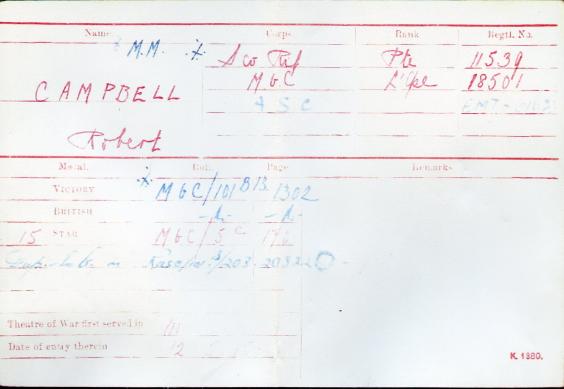 Name Corps Rank Regtl. No.
M.M. Sco Rif Pte 11539
M G C L/Cpl 18501
CAMPBELL
A S C
Robert
Medal. Roll. Page Remarks
VICTORY M G C/101 B 13 1302
BRITISH -do- -do-
15 STAR M G C/5 C
RASC
Theatre of War first served in
Date of entry therein 12
K. 1380.